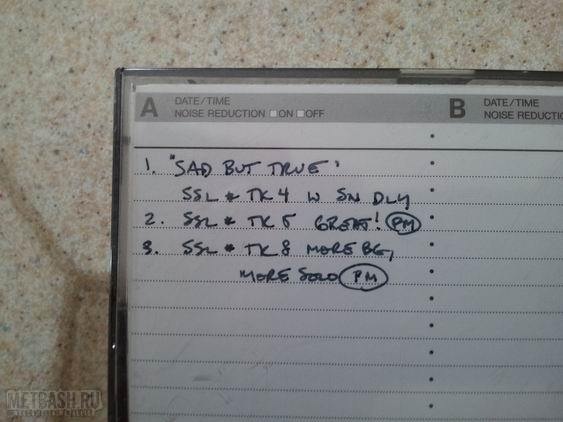 A DATE/TIME
NOISE REDUCTION □ON □OFF
B DATE/TIME
NOISE REDUCTION
1. "SAD BUT TRUE"
SSL * TK 4 W SN DLY
2. SSL * TK 5 GREAT! PM
3. SSL * TK 8 MORE BG,
MORE SOLO PM
METBASH.RU